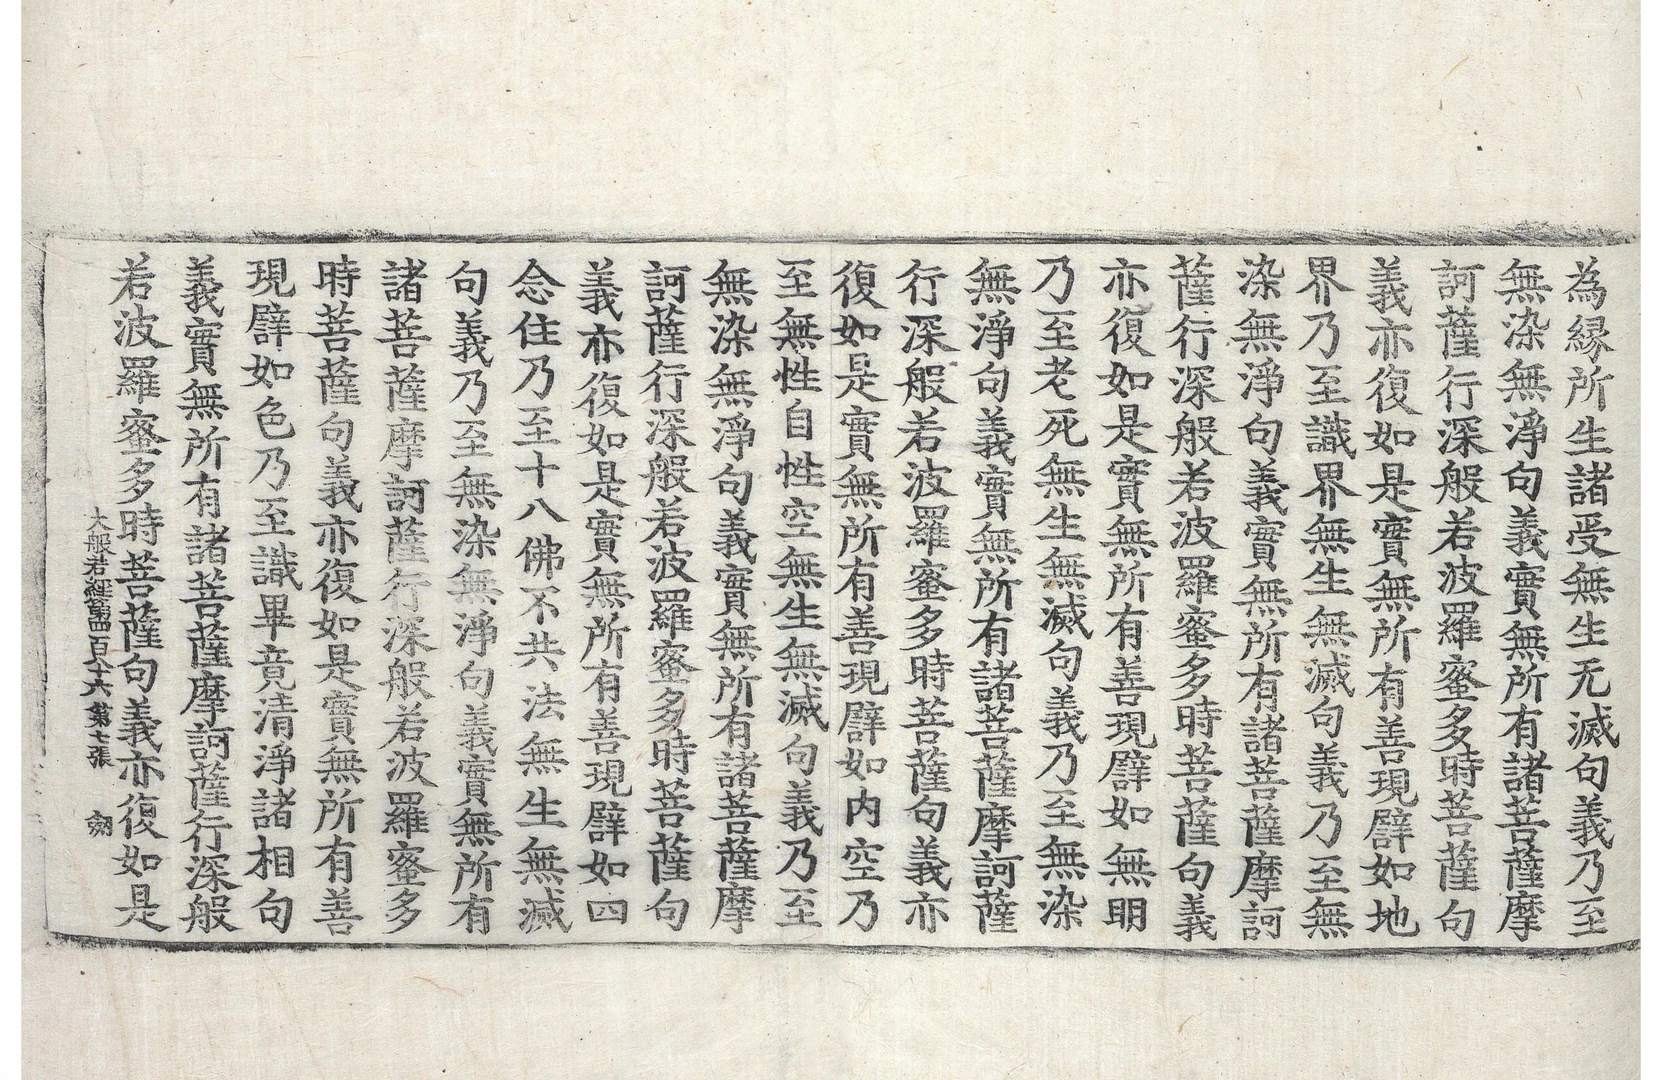 為縁所生諸受無生无滅句義乃至
無染無淨句義實無所有諸菩薩摩
訶薩行深般若波羅蜜多時菩薩句
義亦復如是實無所有善現譬如地
界乃至識界無生無滅句義乃至無
染無淨句義實無所有諸菩薩摩訶
薩行深般若波羅蜜多時菩薩句義
亦復如是實無所有善現譬如無明
乃至老死無生無滅句義乃至無染
無淨句義實無所有諸菩薩摩訶薩
行深般若波羅蜜多時菩薩句義亦
復如是實無所有善現譬如内空乃
至無性自性空無生無滅句義乃至
無染無淨句義實無所有諸菩薩摩
訶薩行深般若波羅蜜多時菩薩句
義亦復如是實無所有善現譬如四
念住乃至十八佛不共法無生無滅
句義乃至無染無淨句義實無所有
諸菩薩摩訶薩行深般若波羅蜜多
時菩薩句義亦復如是實無所有善
現譬如色乃至識畢竟清淨諸相句
義實無所有諸菩薩摩訶薩行深般
若波羅蜜多時菩薩句義亦復如是
大般若經第四百八十六 第七張 劒